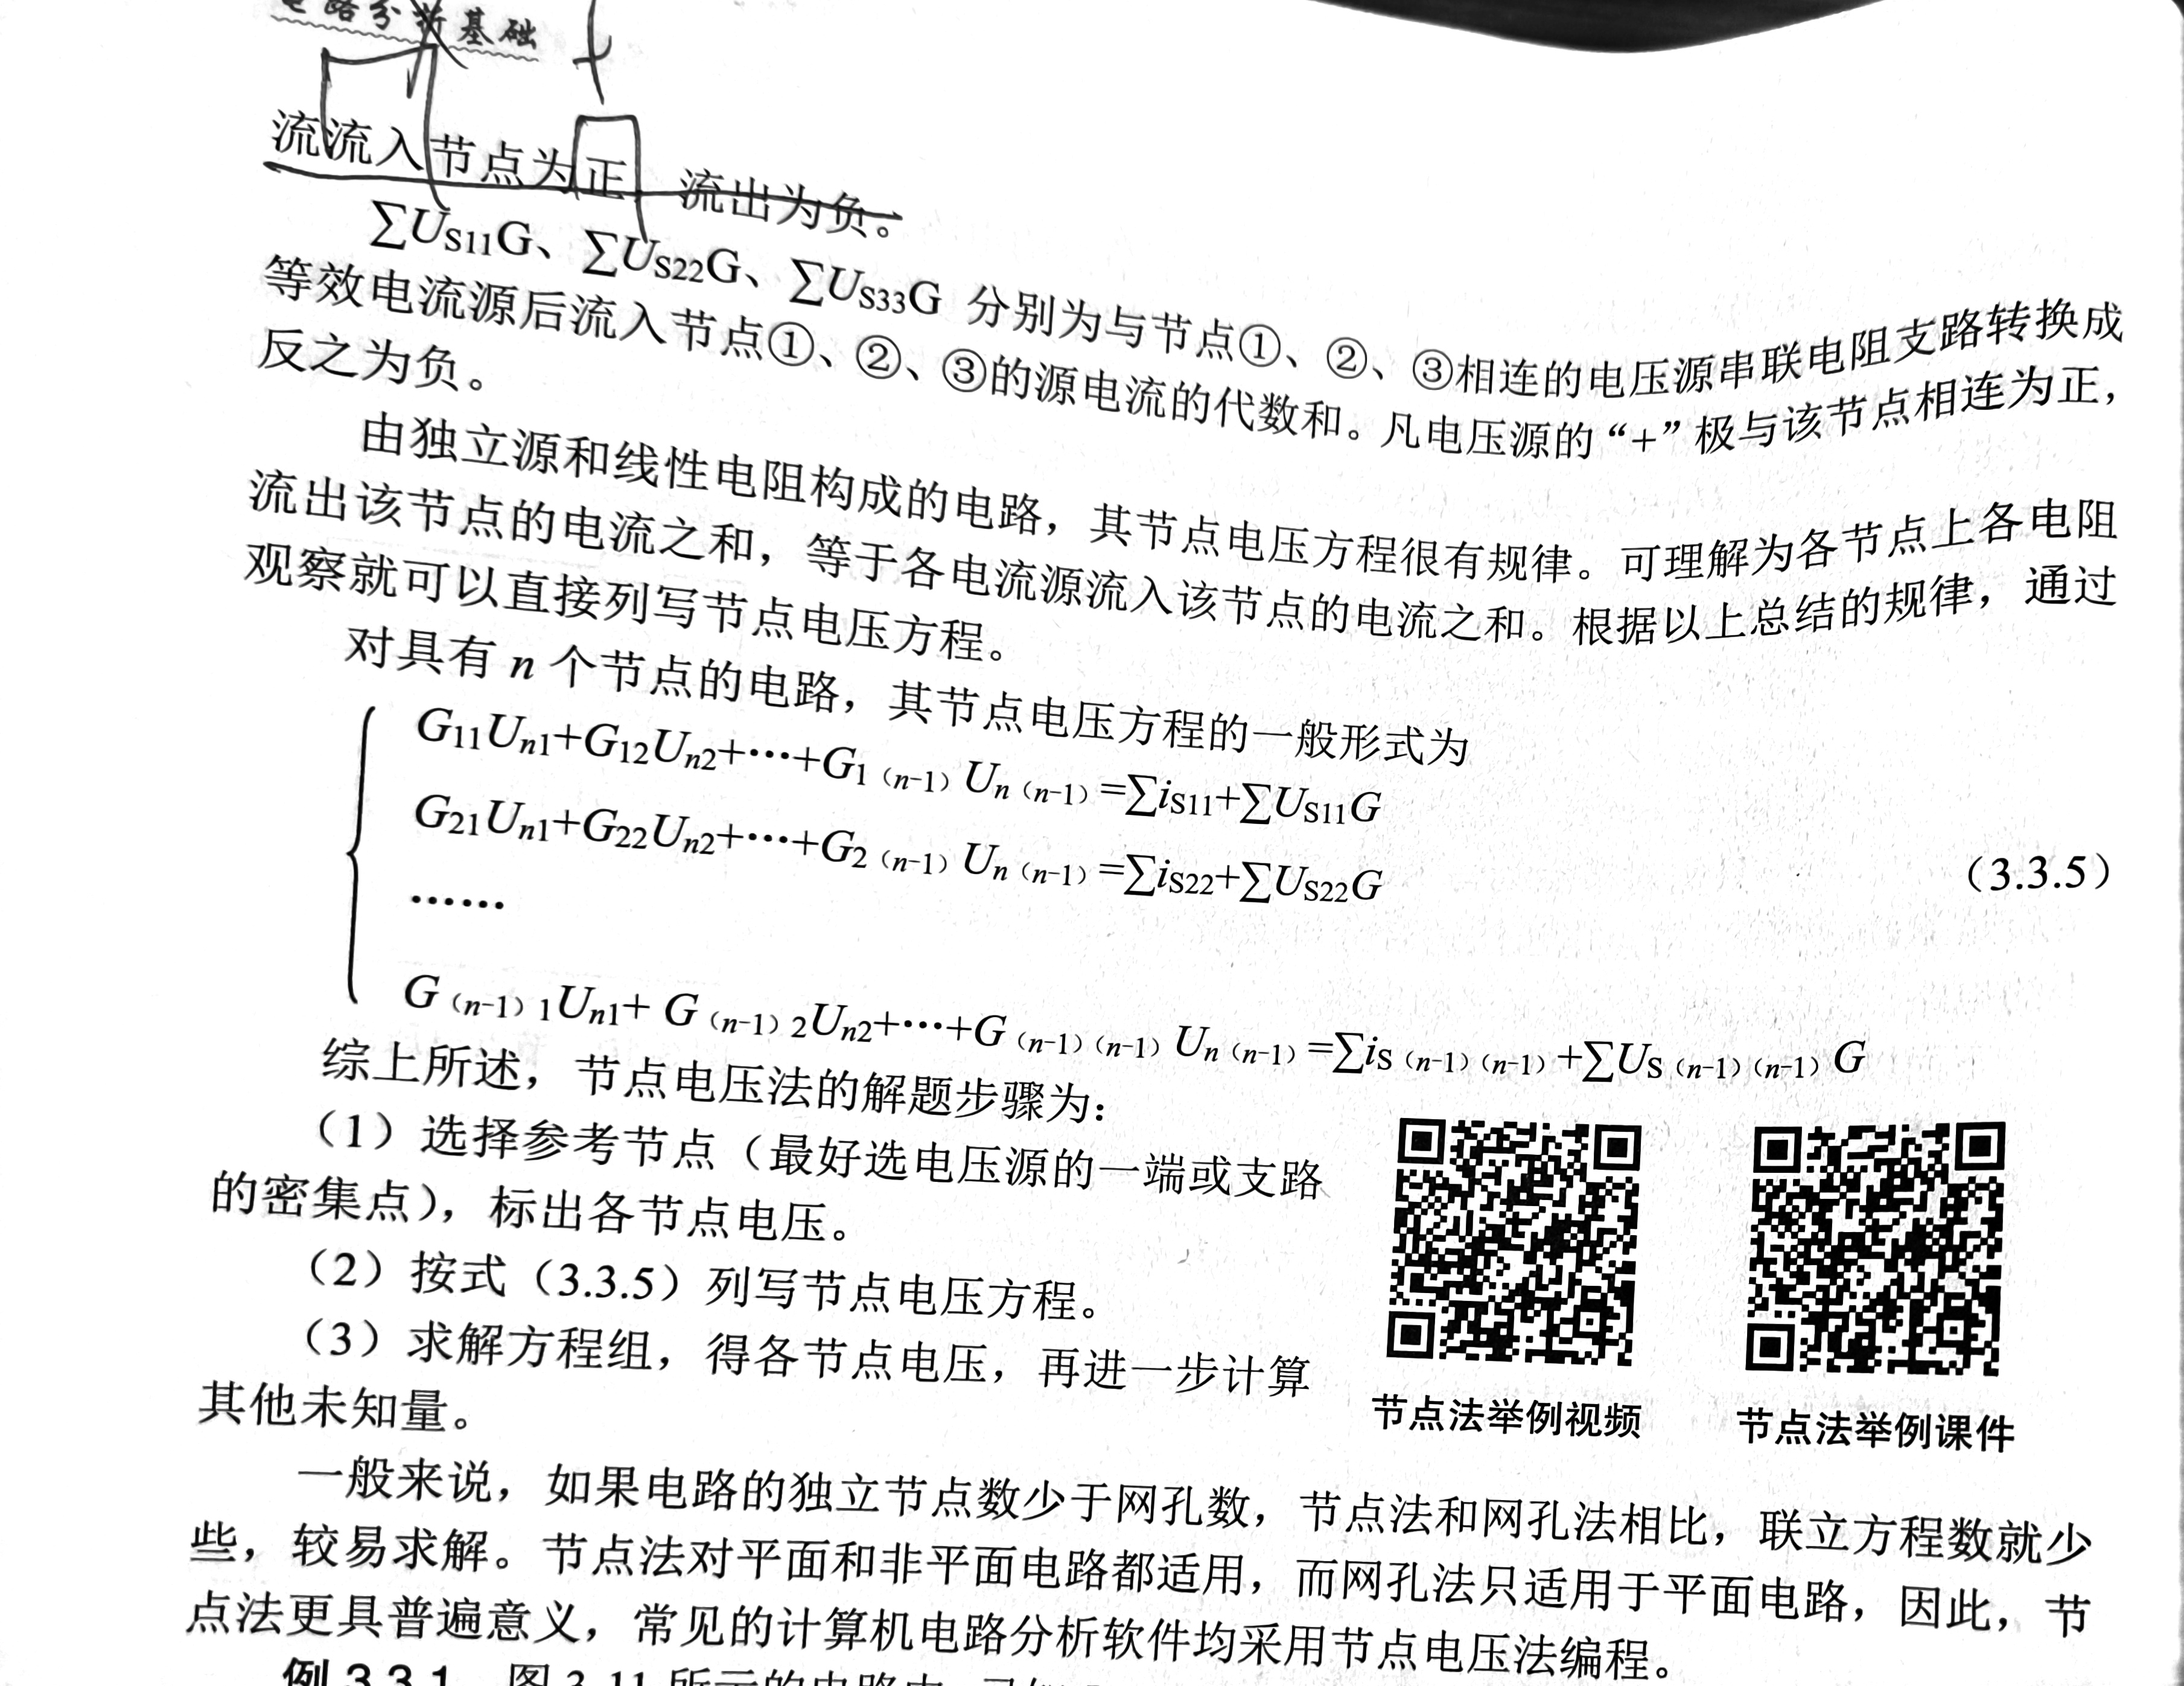 电路分析基础
流流入节点为正，流出为负。
∑U_S11G、∑U_S22G、∑U_S33G 分别为与节点①、②、③相连的电压源串联电阻支路转换成
等效电流源后流入节点①、②、③的源电流的代数和。凡电压源的“+”极与该节点相连为正，
反之为负。
由独立源和线性电阻构成的电路，其节点电压方程很有规律。可理解为各节点上各电阻
流出该节点的电流之和，等于各电流源流入该节点的电流之和。根据以上总结的规律，通过
观察就可以直接列写节点电压方程。
对具有 n 个节点的电路，其节点电压方程的一般形式为
G_11U_n1+G_12U_n2+···+G_1（n-1）U_n（n-1）=∑i_S11+∑U_S11G
G_21U_n1+G_22U_n2+···+G_2（n-1）U_n（n-1）=∑i_S22+∑U_S22G
······
（3.3.5）
G_（n-1）1U_n1+ G_（n-1）2U_n2+···+G_（n-1）（n-1）U_n（n-1）=∑i_S（n-1）（n-1）+∑U_S（n-1）（n-1）G
综上所述，节点电压法的解题步骤为：
（1）选择参考节点（最好选电压源的一端或支路
的密集点），标出各节点电压。
（2）按式（3.3.5）列写节点电压方程。
（3）求解方程组，得各节点电压，再进一步计算
其他未知量。
节点法举例视频
节点法举例课件
一般来说，如果电路的独立节点数少于网孔数，节点法和网孔法相比，联立方程数就少
些，较易求解。节点法对平面和非平面电路都适用，而网孔法只适用于平面电路，因此，节
点法更具普遍意义，常见的计算机电路分析软件均采用节点电压法编程。
例 3.3.1 图 3.11 所示的电路中